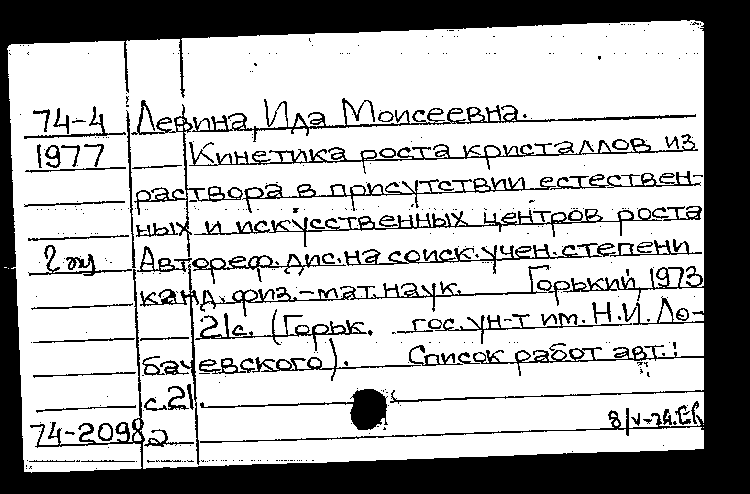 74-4 Левина, Ида Моисеевна.
1977 Кинетика роста кристаллов из
раствора в присутствии естествен-
ных и искусственных центров роста
2 Автореф. дис. на соиск. учен. степени
канд. физ.-мат. наук. Горький, 1973
21с. (Горьк. гос. ун-т им. Н.И. Ло-
бачевского). Список работ авт.:
с.21.
74-2098а